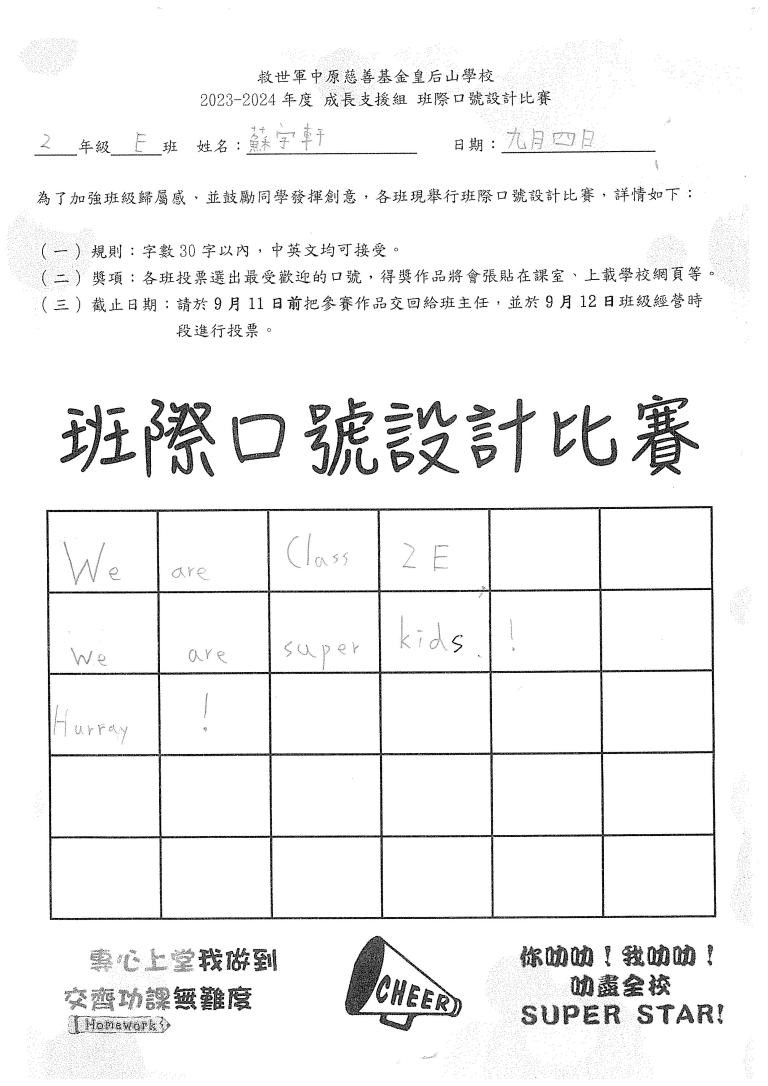 救世軍中原慈善基金皇后山學校
2023-2024 年度 成長支援組 班際口號設計比賽
2 年級 E 班 姓名：蘇宇軒 日期：九月四日
為了加強班級歸屬感、並鼓勵同學發揮創意，各班現舉行班際口號設計比賽，詳情如下：
（一）規則：字數 30 字以內，中英文均可接受。
（二）獎項：各班投票選出最受歡迎的口號，得獎作品將會張貼在課室、上載學校網頁等。
（三）截止日期：請於 9 月 11 日前把參賽作品交回給班主任，並於 9 月 12 日班級經營時
段進行投票。
班際口號設計比賽
We are Class 2E
We are super kids. !
Hurray !
專心上堂我做到
交齊功課無難度
Homework
CHEER
你叻叻！我叻叻！
叻盡全校
SUPER STAR!